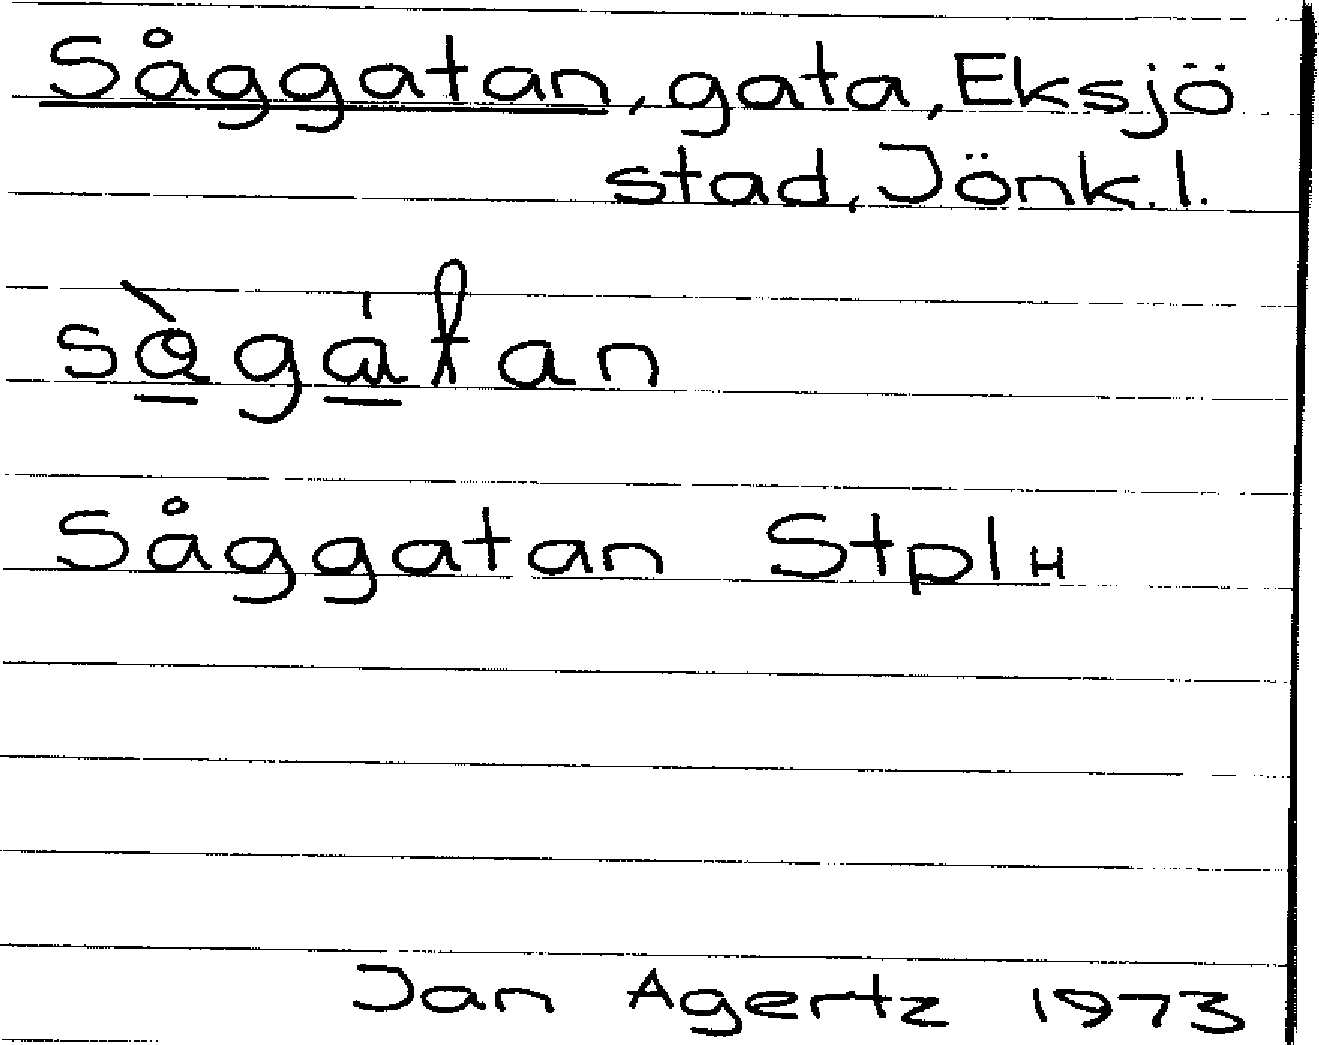 Såggatan, gata, Eksjö
stad, Jönk. l.
Såggatan Stpl H
Jan Agertz 1973